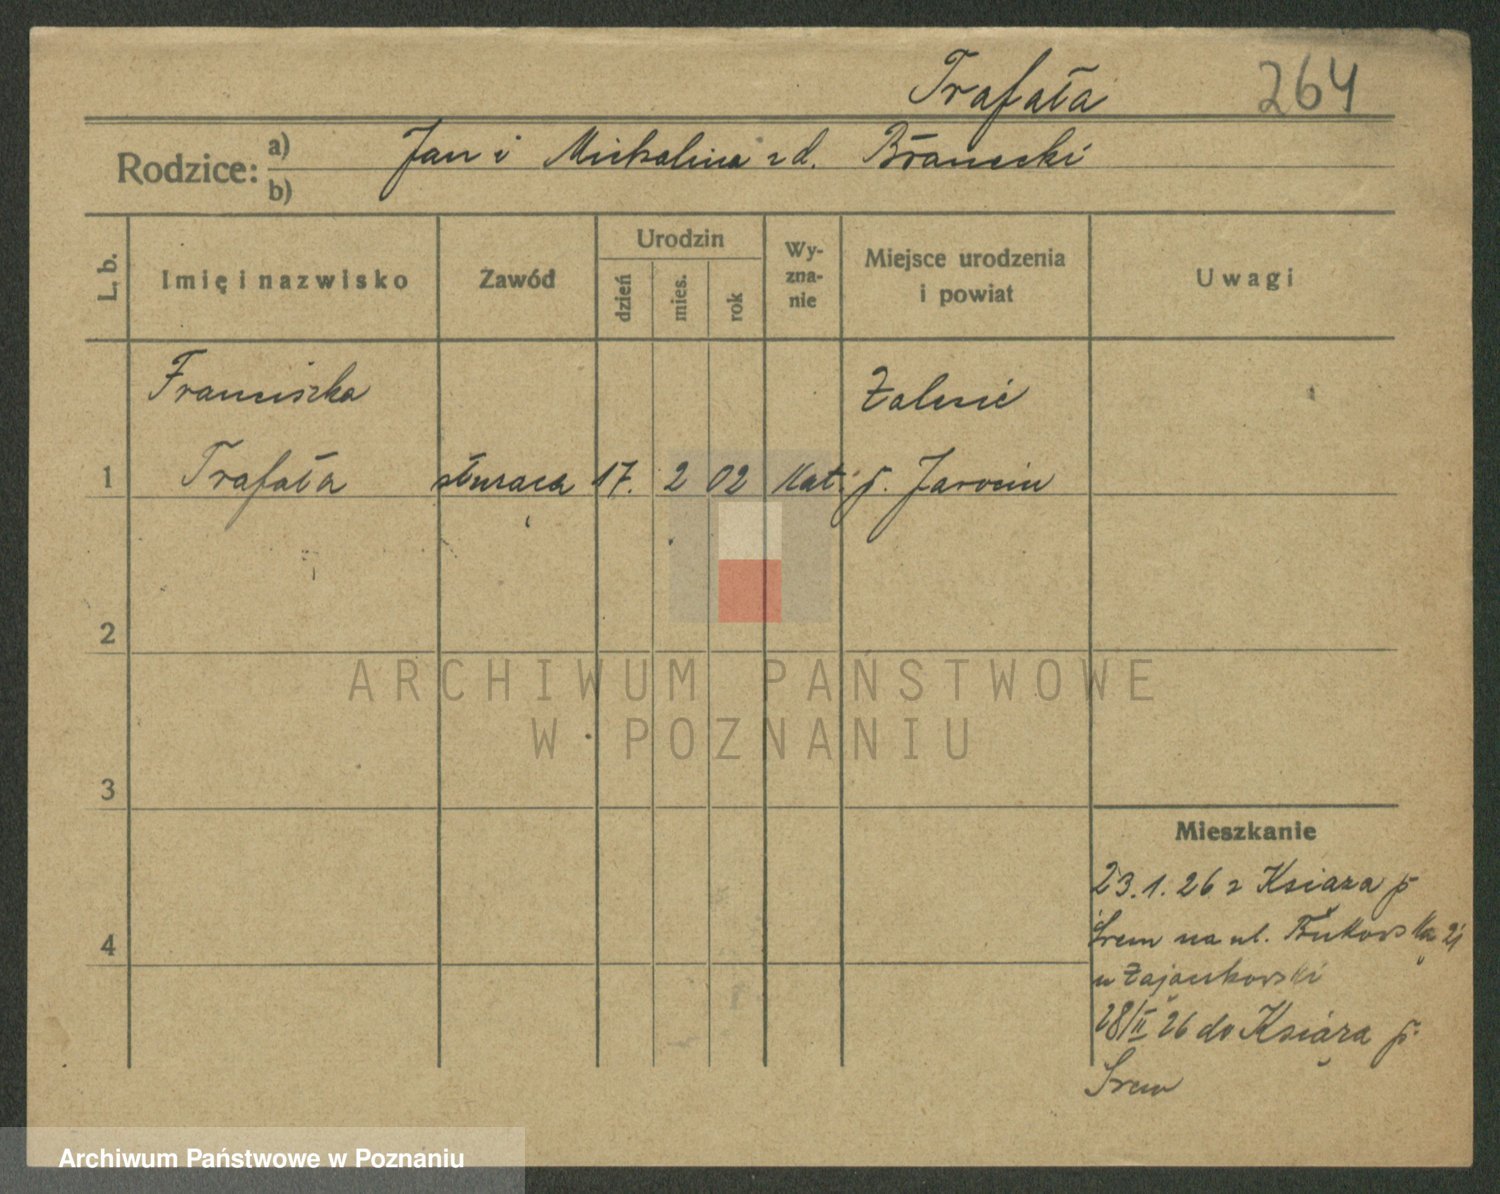 Trafała 264
Rodzice: a) Jan i Michalina z d. Błanecki
b)
L. b. Imię i nazwisko Zawód Urodzin dzień mies. rok Wyznanie Miejsce urodzenia i powiat Uwagi
Franciszka Zalesie
1 Trafała służąca 17. 2 02 kat. p. Jarocin
2
ARCHIWUM PAŃSTWOWE
W POZNANIU
3
Mieszkanie
23.1.26 z Książa p
4 Śrem na ul. Bukowska 21
u Zajankowski
28/II 26 do Książa p.
Śrem
Archiwum Państwowe w Poznaniu